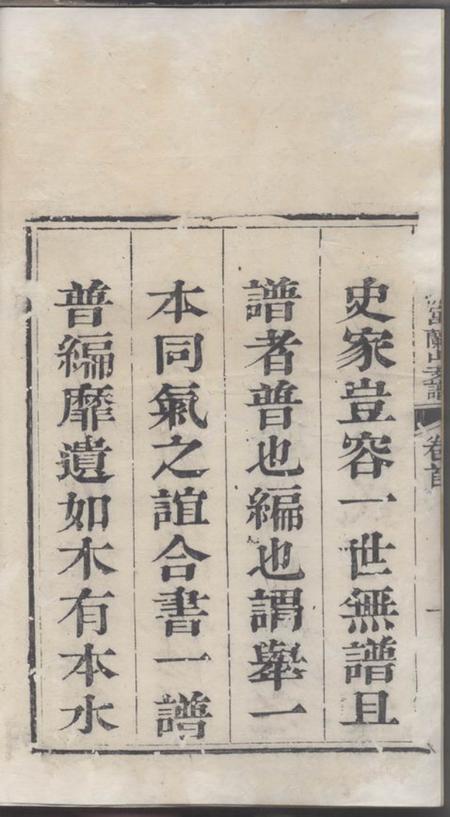 史家豈容一世無譜且
譜者普也編也謂舉一
本同氣之誼合書一譜
普編靡遺如木有本水
卷首